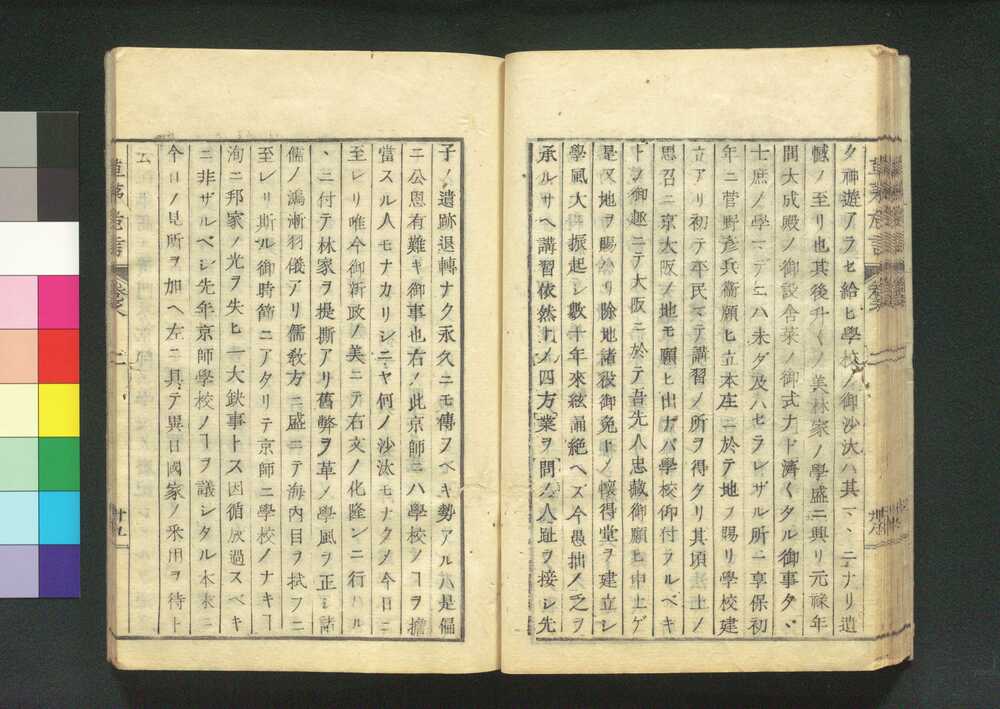 タ神遊アラセ給ヒ學校ノ御沙汰ハ其マヽニナリ遺
憾ノ至リ也其後升 美林家ノ學盛ニ興リ元祿年
間大成殿ノ御設舎菜ノ御式ナド濟々タル御事タヾ
士庶ノ學マデニハ未ダ及ハセラレザル所ニ享保初
年ニ菅野彦兵衞願ヒ立本庄ニ於テ地ヲ賜リ學校建
立アリ初テ平民マテ講習ノ所ヲ得タリ其頃 上ノ
思召ニ京大阪ノ地モ願ヒ出ナバ學校仰付ラルベキ
トノ御趣ニテ大阪ニ於テ吾先人忠藏御願ヒ申上ゲ
是又地ヲ賜 リ除地諸役御免ドノ懷得堂ヲ建立シ
學風大 振起シ數十年來絃誦絶ヘズ今愚拙ノ之ヲ
承ルサヘ講習依然トノ四方業ヲ問ノ人趾ヲ接シ先
子ノ遺跡退轉ナク永久ニモ傳フベキ勢アル八是偏
ニ公恩有難キ御事也右ノ此京師ニハ學校ノヿヲ擔
當スル人モナカリシニヤ何ノ沙汰モナクメ今日ニ
至レリ唯今御新政ノ美ニテ右文ノ化隆シニ行ハル
ヽニ付テ林家ヲ提撕アリ舊弊ヲ革ノ學風ヲ正シ諸
儒ノ鴻漸羽儀アリ儒敎方ニ盛ニテ海内目ヲ拭フニ
至レリ斯ル御時節ニアタリテ京師ニ學校ノナキヿ
洵ニ邦家ノ光ヲ失ヒ一大缺事トス因循放過スベキ
ニ非ザルベシ先年京師學校ノヿヲ議シタル本末ニ
今日ノ見所ヲ加ヘ左ニ具テ異日國家ノ釆用ヲ待ト
ム